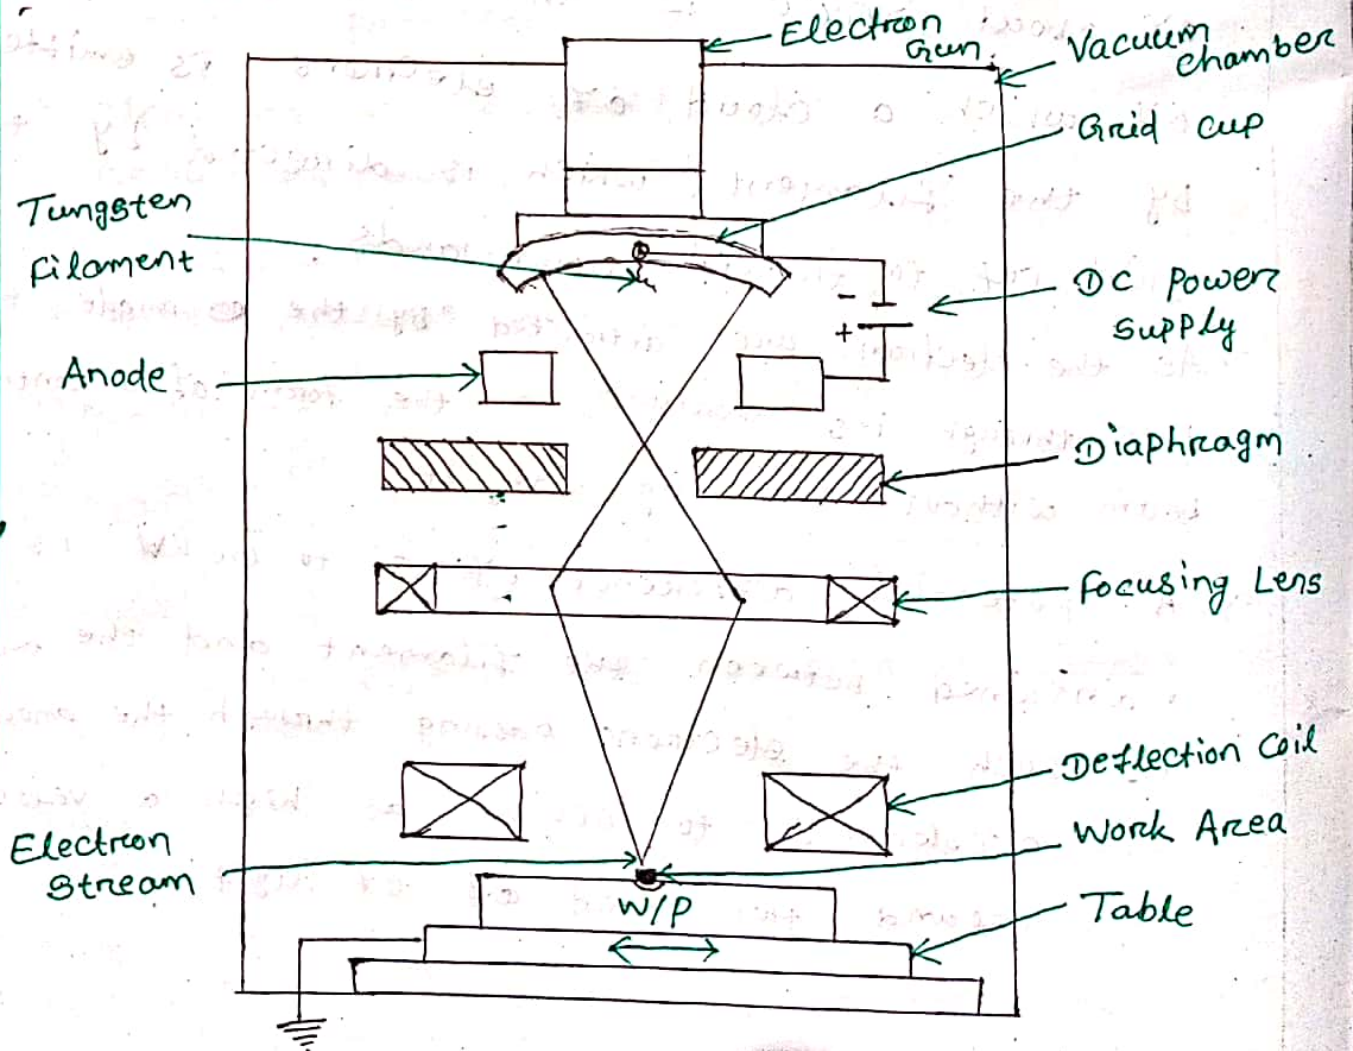 Electron
Gun
Vacuum
chamber
Grid cup
Tungsten
filament
DC Power
supply
-
+
Anode
Diaphragm
focusing Lens
Deflection coil
Work Area
Electron
stream
W/P
Table